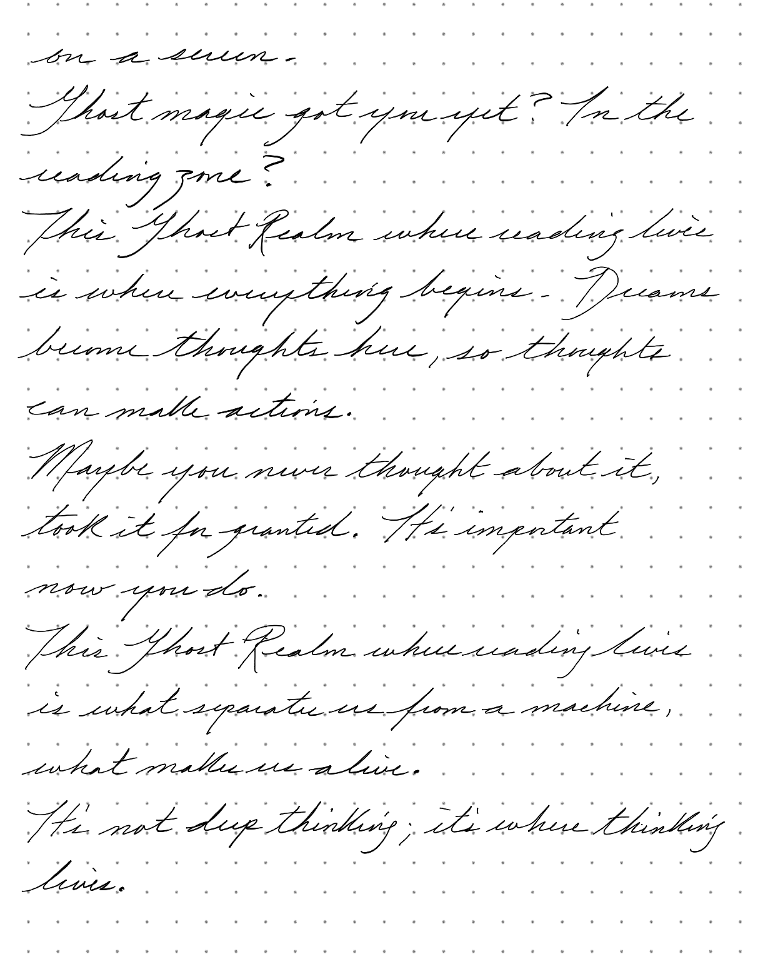 on a screen.
Ghost magic got you yet? In the
reading zone?
This Ghost Realm where reading lives
is where everything begins. Dreams
become thoughts here, so thoughts
can make actions.
Maybe you never thought about it,
took it for granted. It's important
now you do.
This Ghost Realm where reading lives
is what separates us from a machine,
what makes us alive.
It's not deep thinking; it's where thinking
lives.